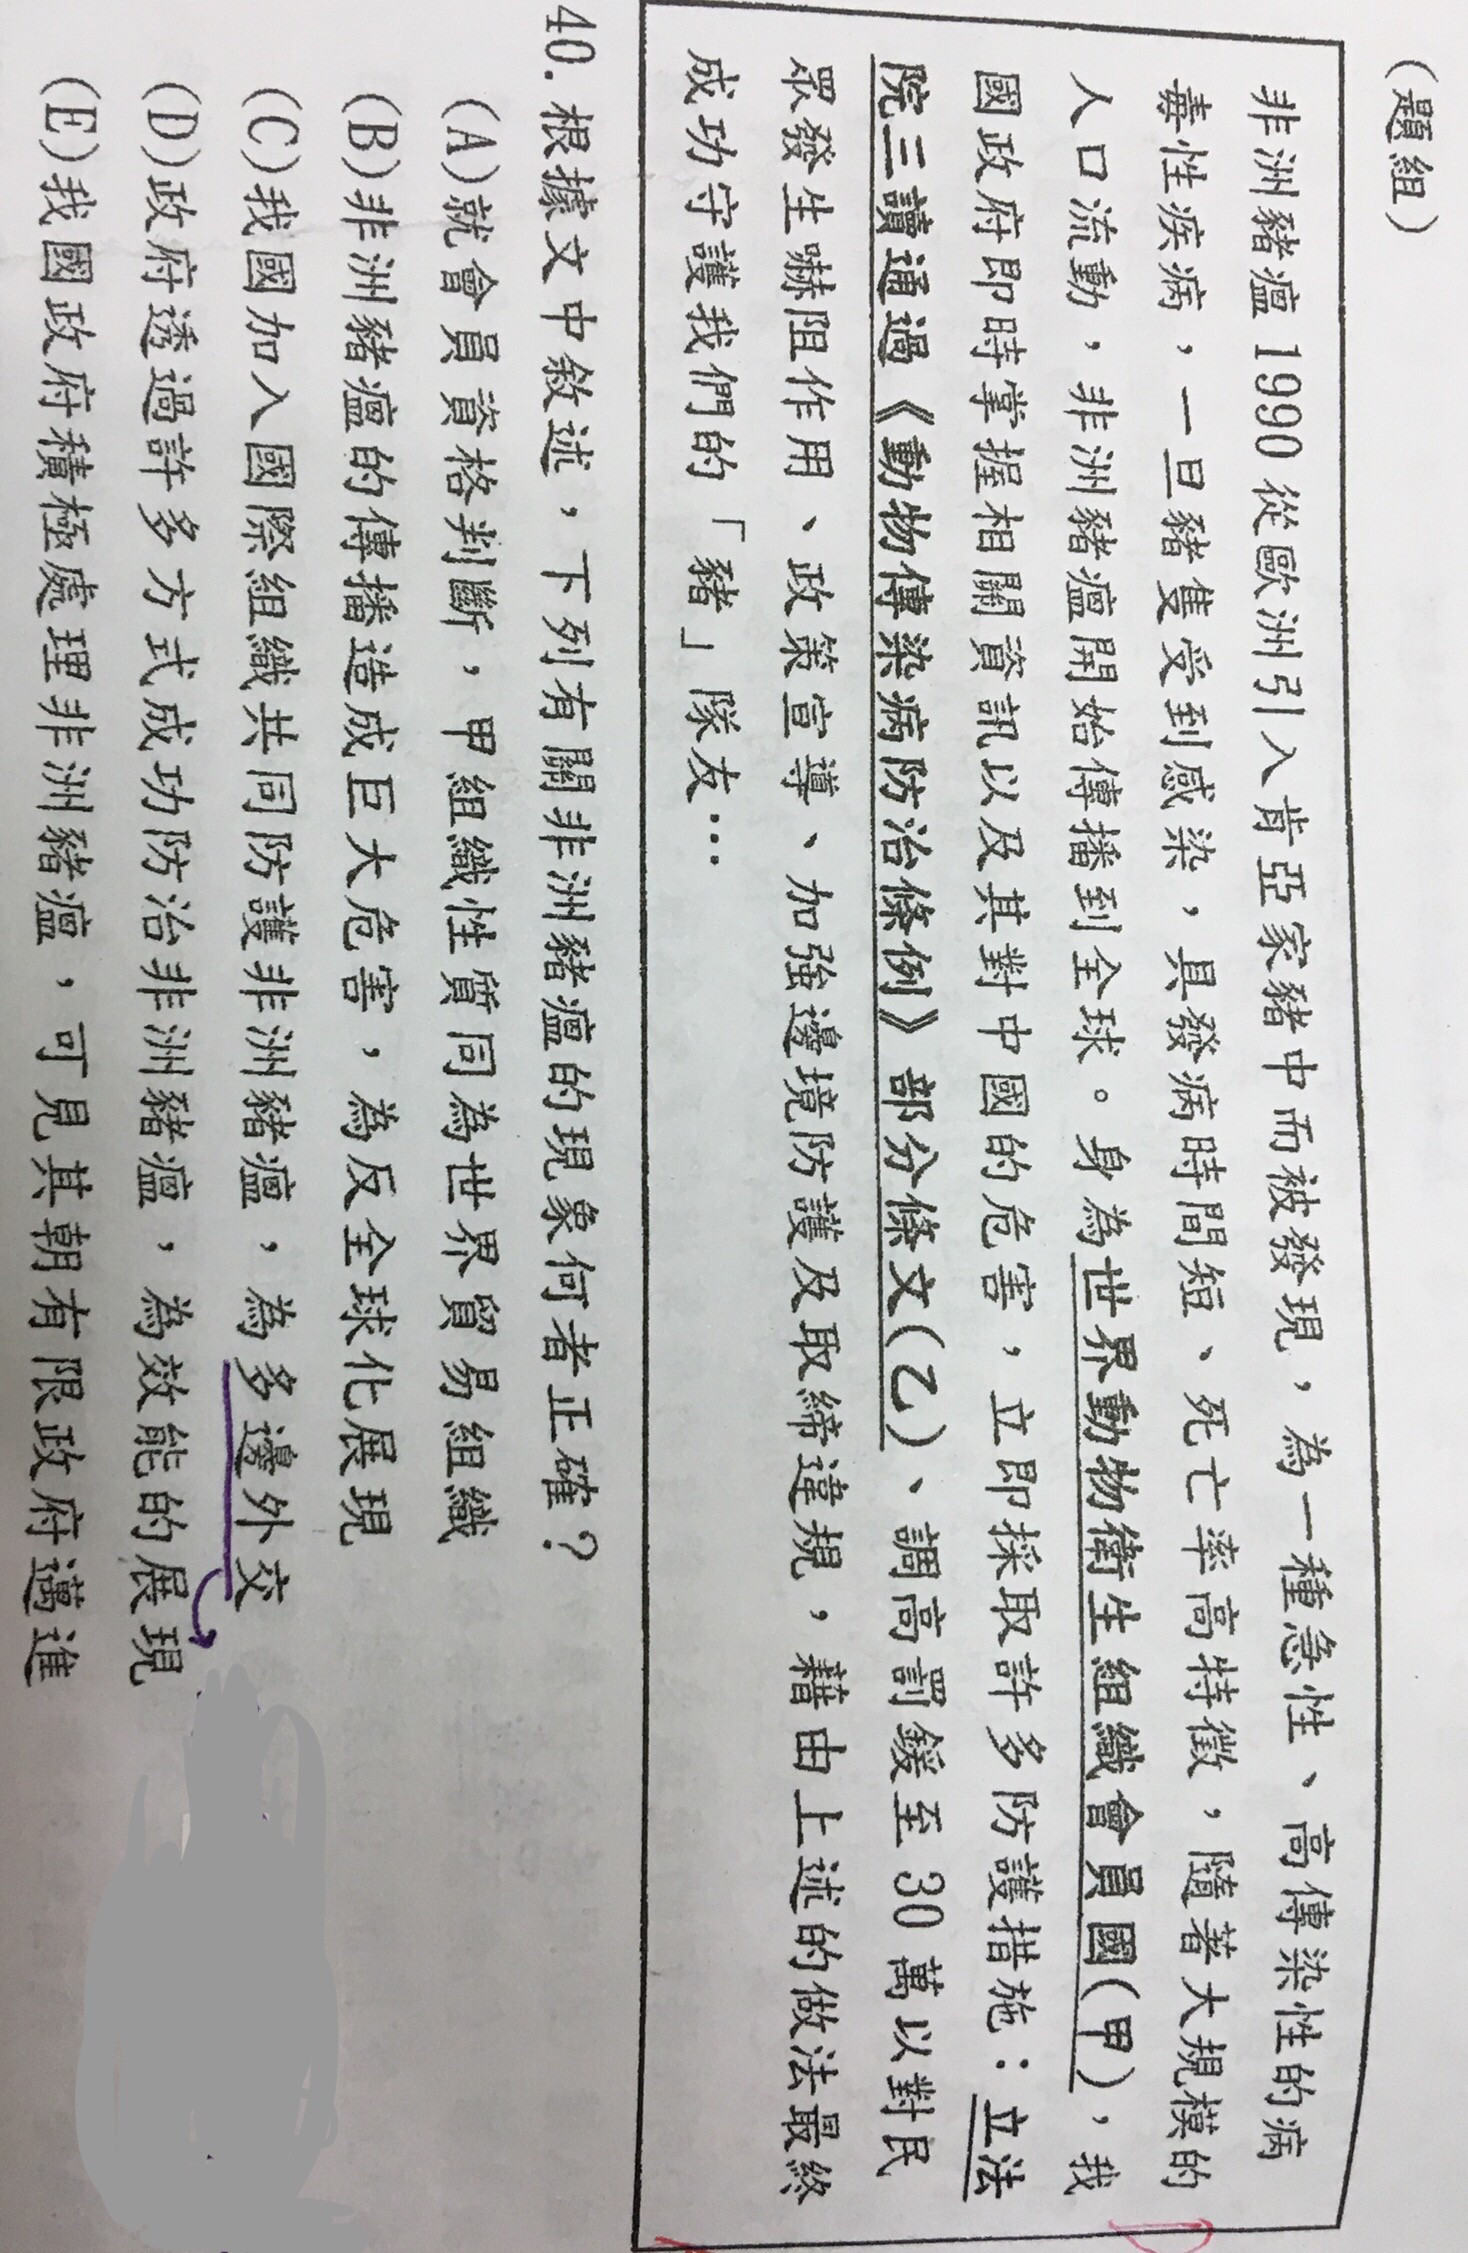 (題組)
非洲豬瘟 1990 從歐洲引入肯亞家豬中而被發現，為一種急性、高傳染性的病
毒性疾病，一旦豬隻受到感染，具發病時間短、死亡率高特徵，隨著大規模的
人口流動，非洲豬瘟開始傳播到全球。身為世界動物衛生組織會員國(甲)，我
國政府即時掌握相關資訊以及其對中國的危害，立即採取許多防護措施：立法
院三讀通過《動物傳染病防治條例》部分條文(乙)、調高罰鍰至 30 萬以對民
眾發生嚇阻作用、政策宣導、加強邊境防護及取締違規，藉由上述的做法最終
成功守護我們的「豬」隊友…
40. 根據文中敘述，下列有關非洲豬瘟的現象何者正確？
(A)就會員資格判斷，甲組織性質同為世界貿易組織
(B)非洲豬瘟的傳播造成巨大危害，為反全球化展現
(C)我國加入國際組織共同防護非洲豬瘟，為多邊外交
(D)政府透過許多方式成功防治非洲豬瘟，為效能的展現
(E)我國政府積極處理非洲豬瘟，可見其朝有限政府邁進